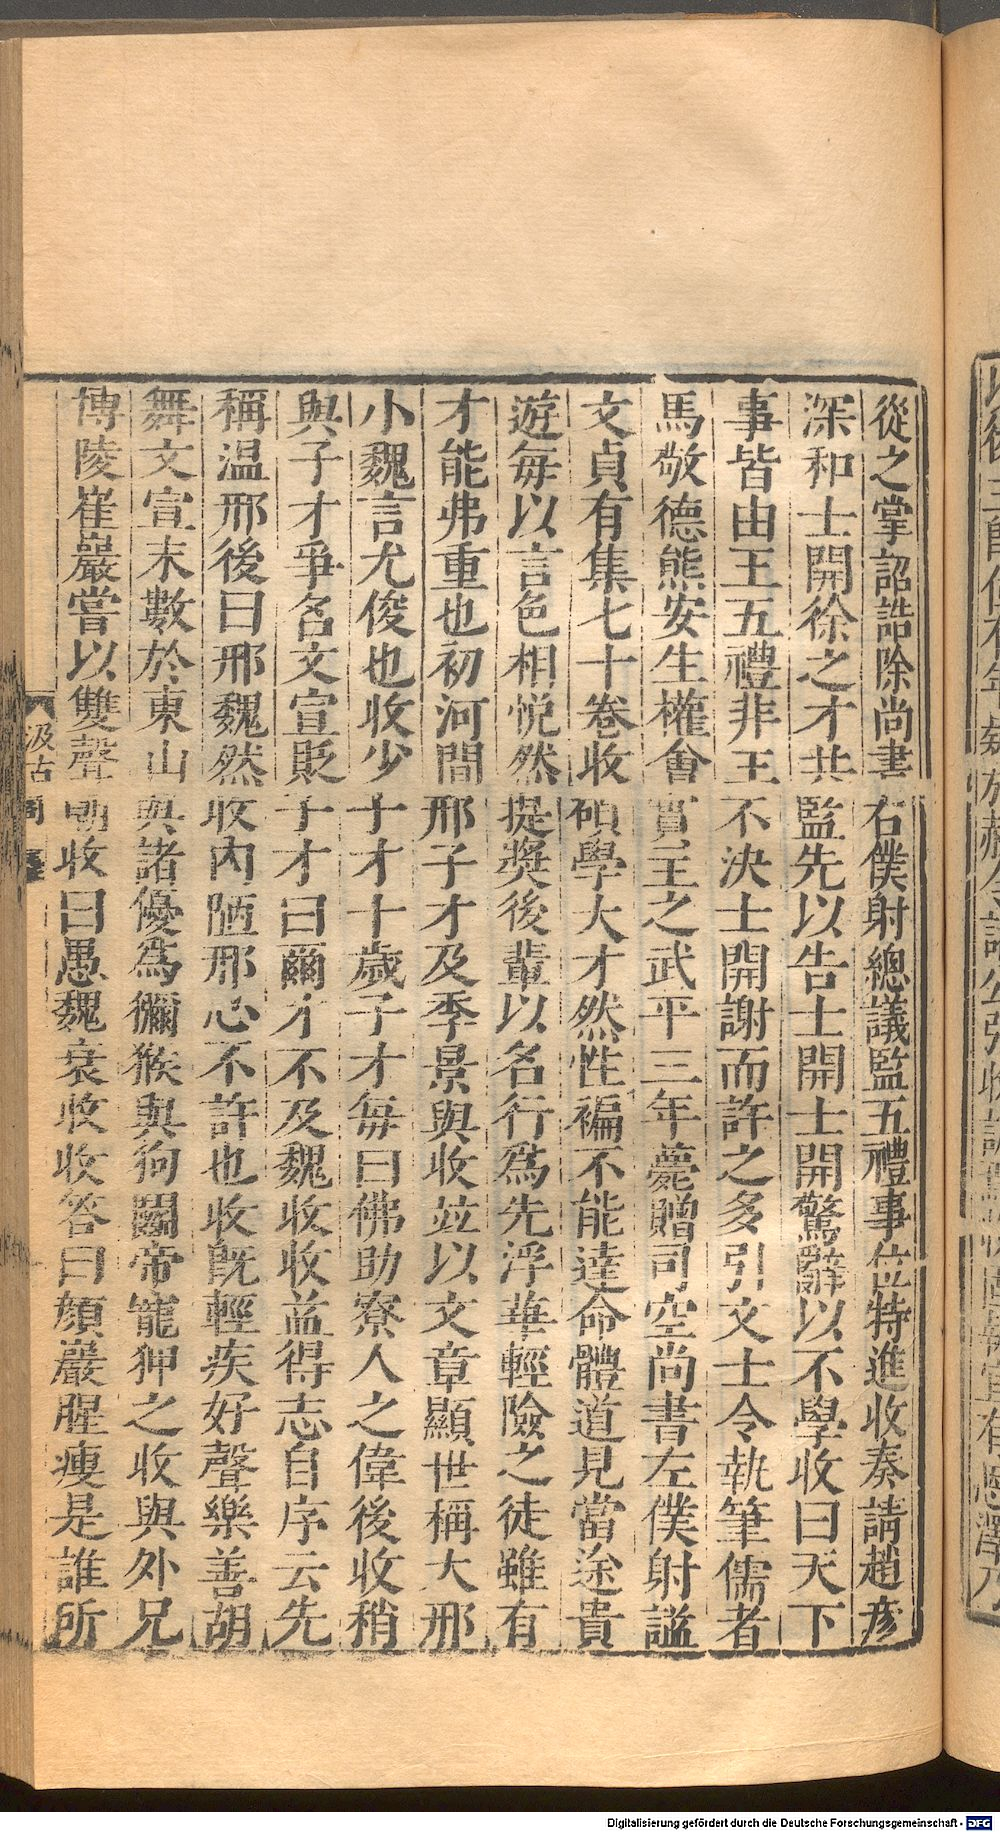 從之掌詔誥除尚書右僕射總議監五禮事位特進收奏請趙彦
深和士開徐之才共監先以告士開士開驚辭以不學收曰天下
事皆由王五禮非王不決士開謝而許之多引文士令執筆儒者
馬敬德熊安生權會實主之武平三年薨贈司空尚書左僕射謚
文貞有集七十卷收碩學大才然性褊不能達命體道見當途貴
遊每以言色相悦然提奬後輩以名行爲先浮華輕險之徒雖有
才能弗重也初河間邢子才及季景與收竝以文章顯世稱大邢
小魏言尤俊也收少子才十歲子才每曰佛助寮人之偉後收稍
與子才爭名文宣貶子才曰爾才不及魏收收益得志自序云先
稱温邢後曰邢魏然收内陋邢心不許也收既輕疾好聲樂善胡
舞文宣末數於東山與諸優爲獼猴與狗鬬帝寵狎之收與外兄
博陵崔巖嘗以雙聲嘲收曰愚魏衰收收答曰顔巖腥瘦是誰所
汲古閣
Digitalisierung gefördert durch die Deutsche Forschungsgemeinschaft - DFG